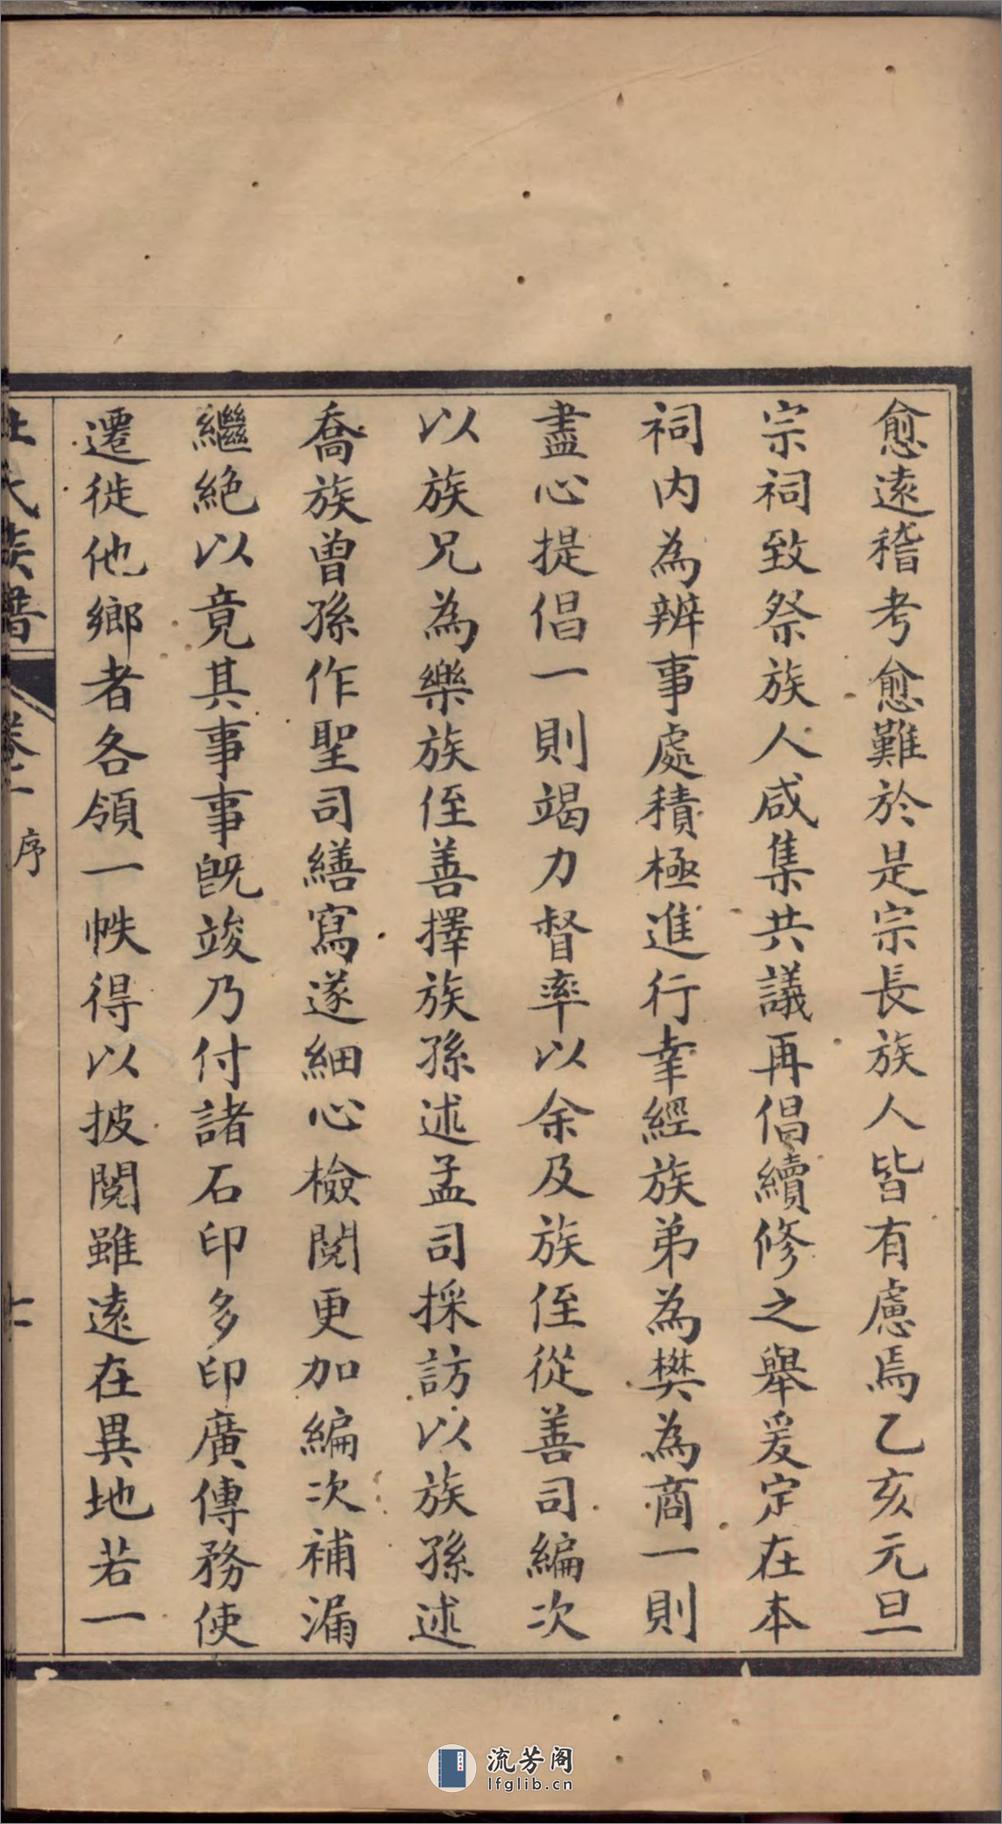 愈遠稽考愈難於是宗長族人皆有慮焉乙亥元旦
宗祠致祭族人咸集共議再倡續修之舉爰定在本
祠內為辨事處積極進行幸經族弟為樊為商一則
盡心提倡一則竭力督率以余及族侄從善司編次
以族兄為樂族侄善擇族孫述孟司採訪以族孫述
喬族曾孫作聖司繕寫遂細心檢閱更加編次補漏
繼絶以竟其事事旣竣乃付諸石印多印廣傳務使
遷徙他鄉者各領一帙得以披閱雖遠在異地若一
氏族譜
卷一 序
流芳阁
lfglib.cn